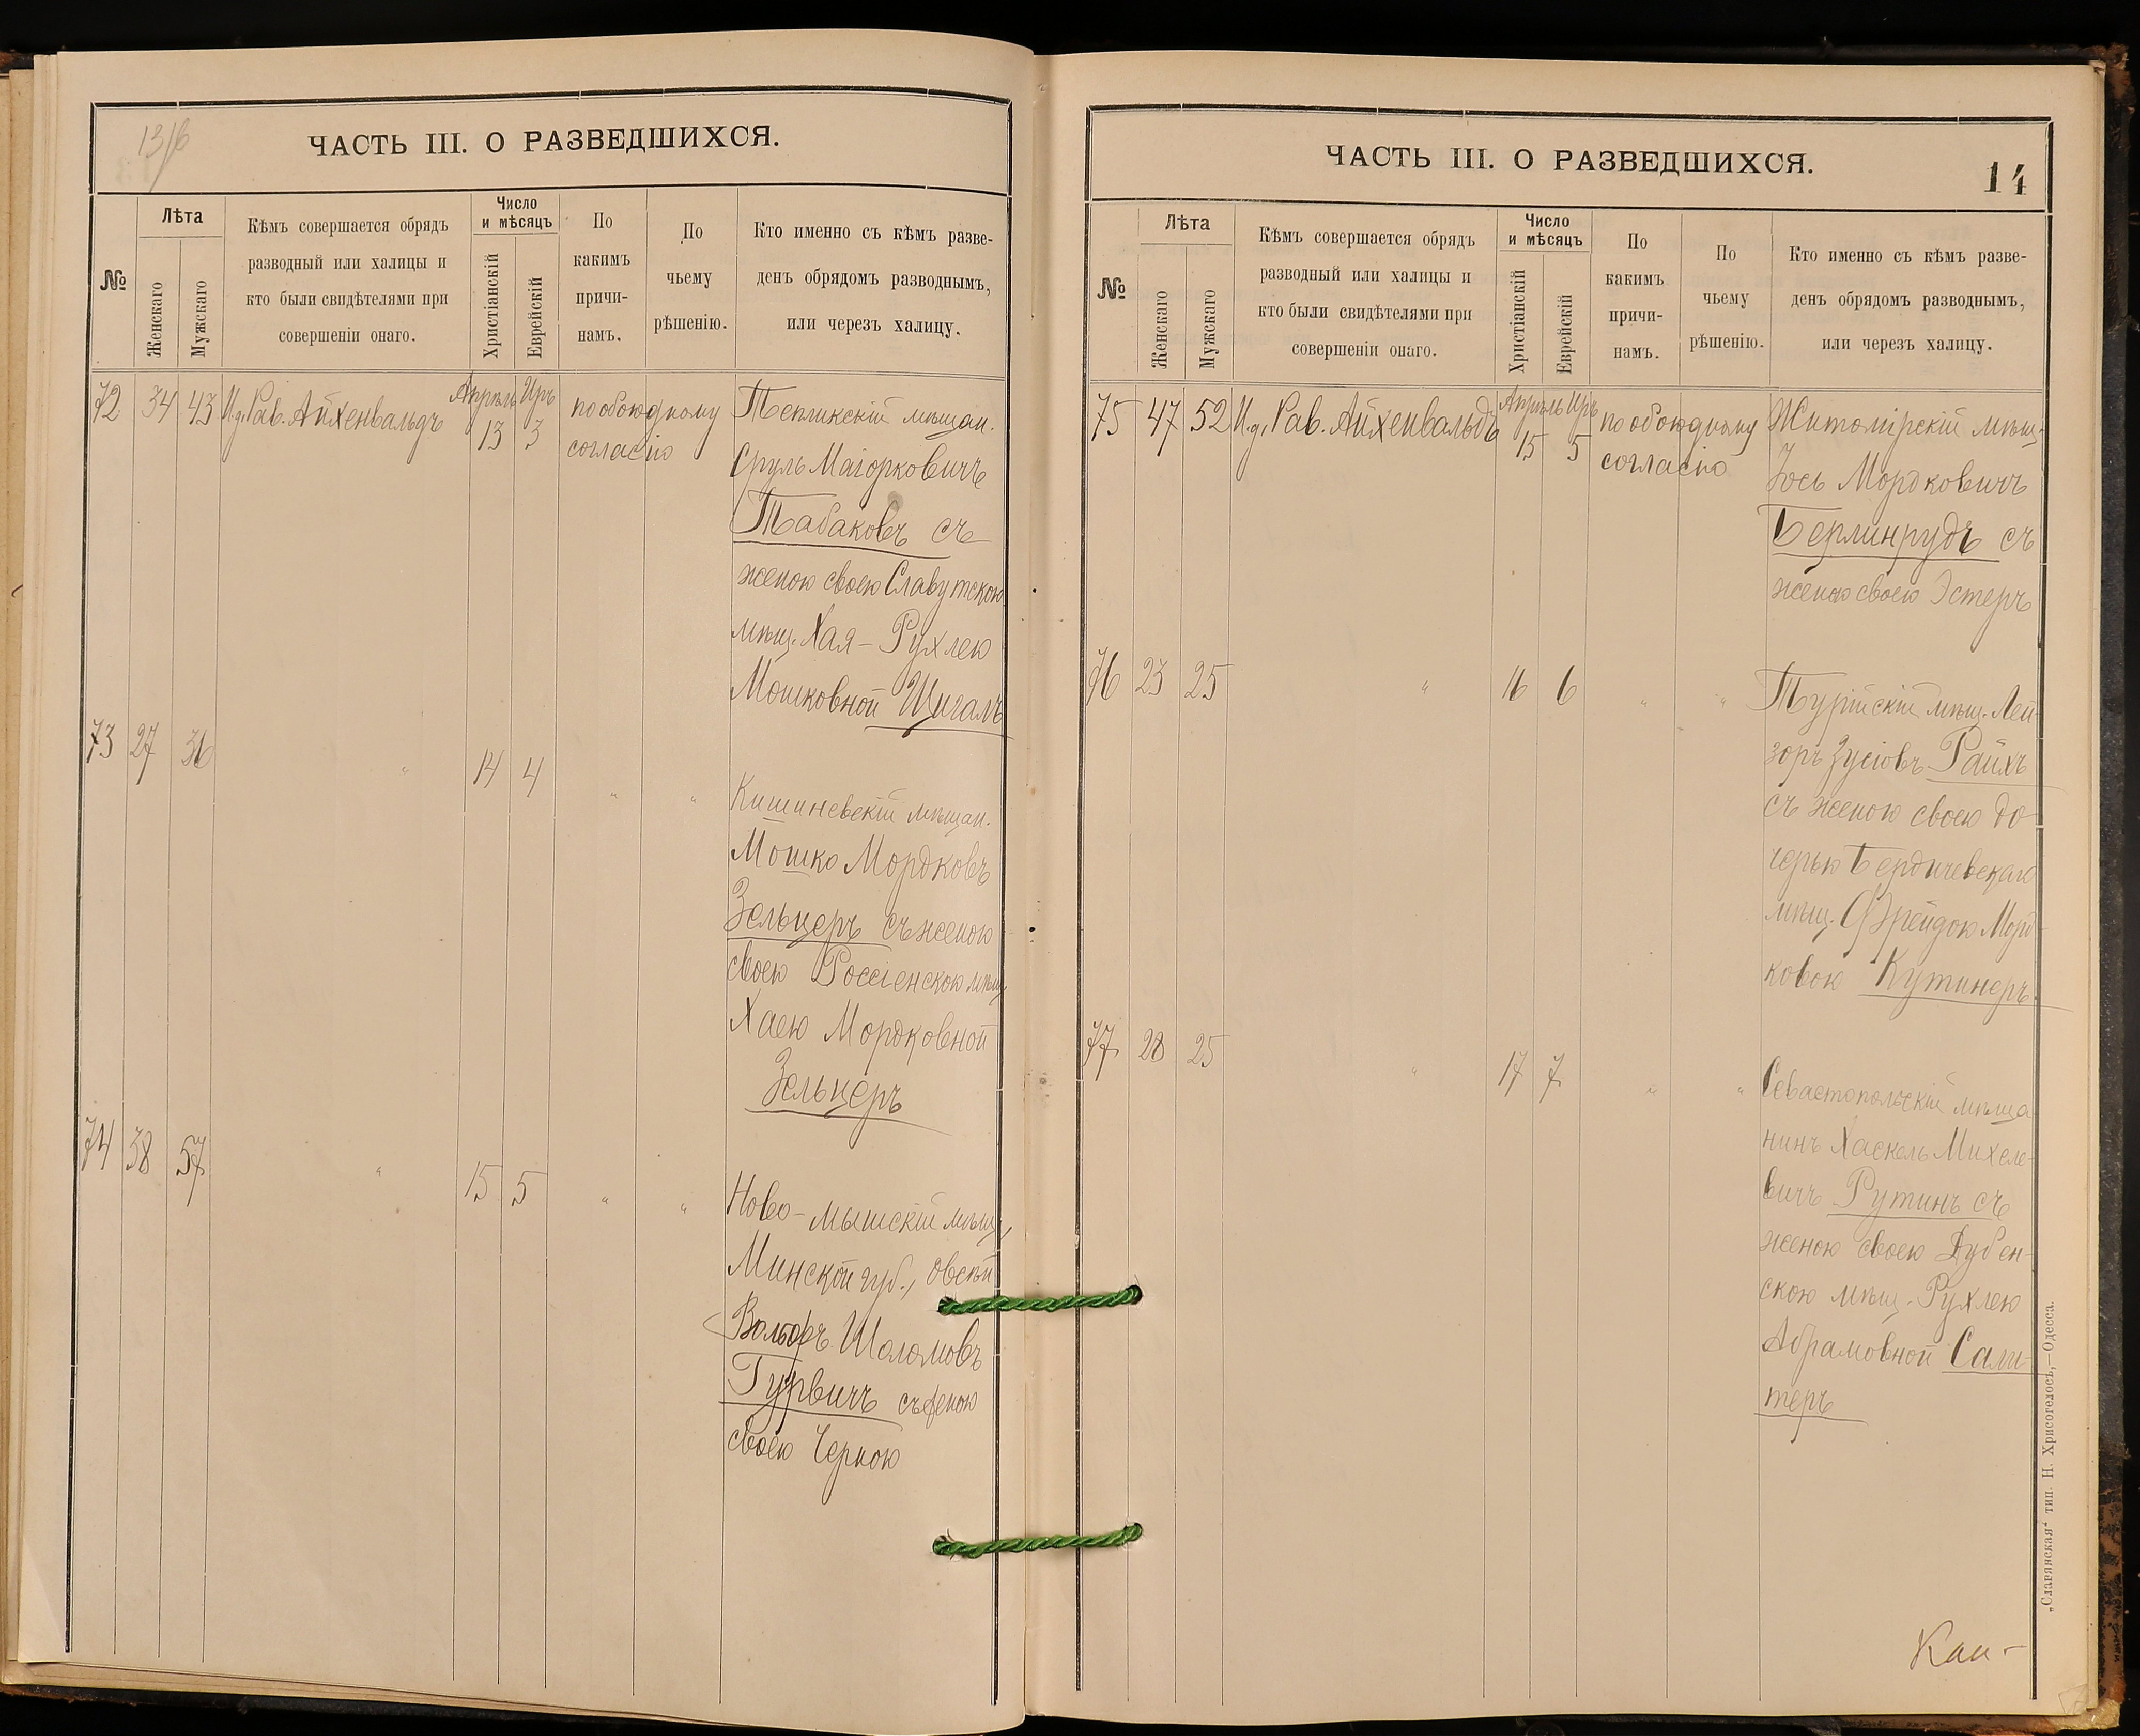 13/б
ЧАСТЬ III. О РАЗВЕДШИХСЯ.
№
Лѣта
Женскаго
Мужскаго
Кѣмъ совершается обрядъ
разводный или халицы и
кто были свидѣтелями при
совершеніи онаго.
Число
и мѣсяцъ
Христіанскій
Еврейскій
По
какимъ
причи-
намъ.
По
чьему
рѣшенію.
Кто именно съ кѣмъ разве-
денъ обрядомъ разводнымъ,
или черезъ халицу.
72 34 43 И.д. Рав. Айхенвальдъ Апрѣль 13 Иръ 3 по обоюдному согласію
Тепликскій мѣщан.
Сруль Маіорковичъ
Табаковъ съ
женою своею Славутскою
мѣщ. Хая-Рухлею
Мошковной Шигалъ
73 27 36 " 14 4 " "
Кишиневскій мѣщан.
Мошко Мордковъ
Зельцеръ съ женою
своею Россіенскою мѣщ.
Хаею Мордковной
Зельцеръ
74 38 57 " 15 5 " "
Ново-мышскій мѣщ.
Минской губ., Овсѣй
Вольфъ Шоломовъ
Гурвичъ съ женою
своею Черною
ЧАСТЬ III. О РАЗВЕДШИХСЯ.
14
№
Лѣта
Женскаго
Мужскаго
Кѣмъ совершается обрядъ
разводный или халицы и
кто были свидѣтелями при
совершеніи онаго.
Число
и мѣсяцъ
Христіанскій
Еврейскій
По
какимъ
причи-
намъ.
По
чьему
рѣшенію.
Кто именно съ кѣмъ разве-
денъ обрядомъ разводнымъ,
или черезъ халицу.
75 47 52 И.д. Рав. Айхенвальдъ Апрѣль 15 Иръ 5 по обоюдному согласію
Житомірскій мѣщ.
Іось Мордковичъ
Берлинрудъ съ
женою своею Эстеръ
76 23 25 " 16 6 " "
Турійскій мѣщ. Лей-
зоръ Зусіовъ Райхъ
съ женою своею до-
черью Бердичевскаго
мѣщ. Фрейдою Морд-
ковою Кутинеръ
77 28 25 " 17 7 " "
Севастопольскій мѣща
нинъ Хаскель Михеле-
вичъ Рутинъ съ
женою своею Дубен-
скою мѣщ. Рухлею
Абрамовной Сали-
теръ
Кан-
„Славянская" тип. Н. Хрисогелосъ,—Одесса.